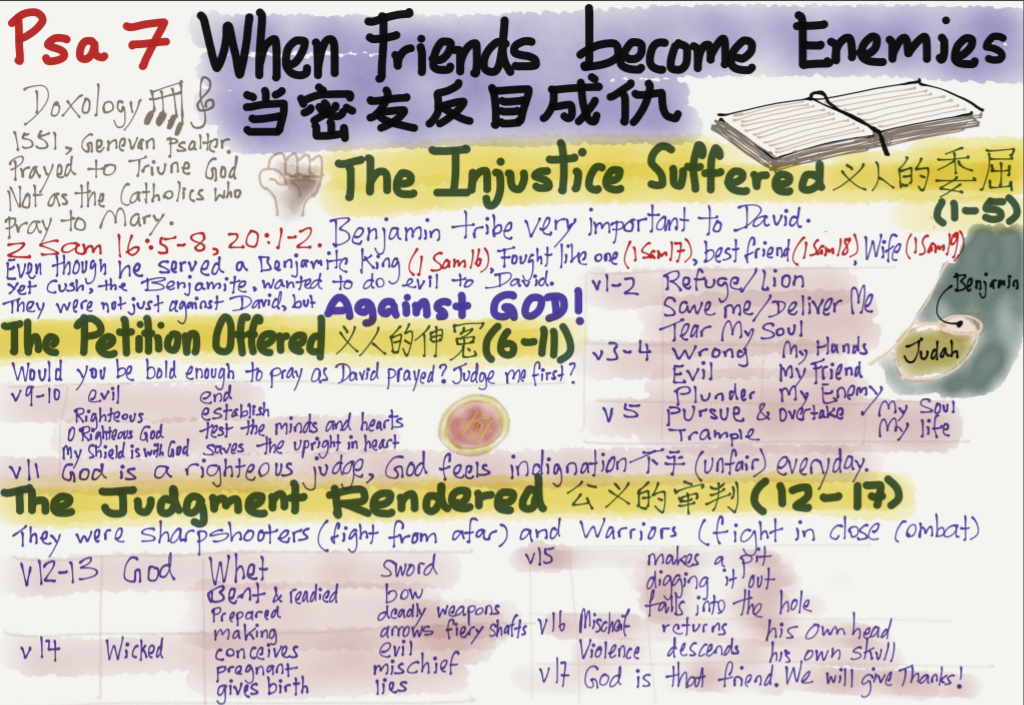 Psa 7 When Friends become Enemies
当密友反目成仇
Doxology
1551, Geneven Psalter.
Prayed to Triune God
Not as the Catholics who
pray to Mary.
The Injustice Suffered 义人的委屈
(1-5)
2 Sam 16:5-8, 20:1-2. Benjamin tribe very important to David.
Even though he served a Benjamite King (1 Sam 16), Fought like one (1 Sam 17), best friend (1 Sam 18), Wife (1 Sam 19)
Yet Cush, the Benjamite, wanted to do evil to David.
They were not just against David, but Against GOD!
v1-2 Refuge/Lion
Save me/Deliver Me
Tear My Soul
v3-4 Wrong My Hands
Evil My Friend
Plunder My Enemy
v5 Pursue & overtake My Soul
Trample My life
Benjamin
Judah
The Petition Offered 义人的伸冤 (6-11)
Would you be bold enough to pray as David prayed? Judge me first?
v9-10 evil end
Righteous establish
O Righteous God test the minds and hearts
My Shield is with God saves the upright in heart
v11 God is a righteous judge, God feels indignation-下手 (unfair) everyday.
The Judgment Rendered 公义的审判 (12-17)
They were sharpshooters (fight from afar) and Warriors (fight in close combat)
v12-13 God Whet sword
Bent & readied bow
Prepared deadly weapons
making arrows fiery shafts
v14 Wicked conceives evil
pregnant mischief
gives birth lies
v15 makes a pit
digging it out
falls into the hole
v16 Mischief returns his own head
Violence descends his own skull
v17 God is that friend. We will give Thanks!